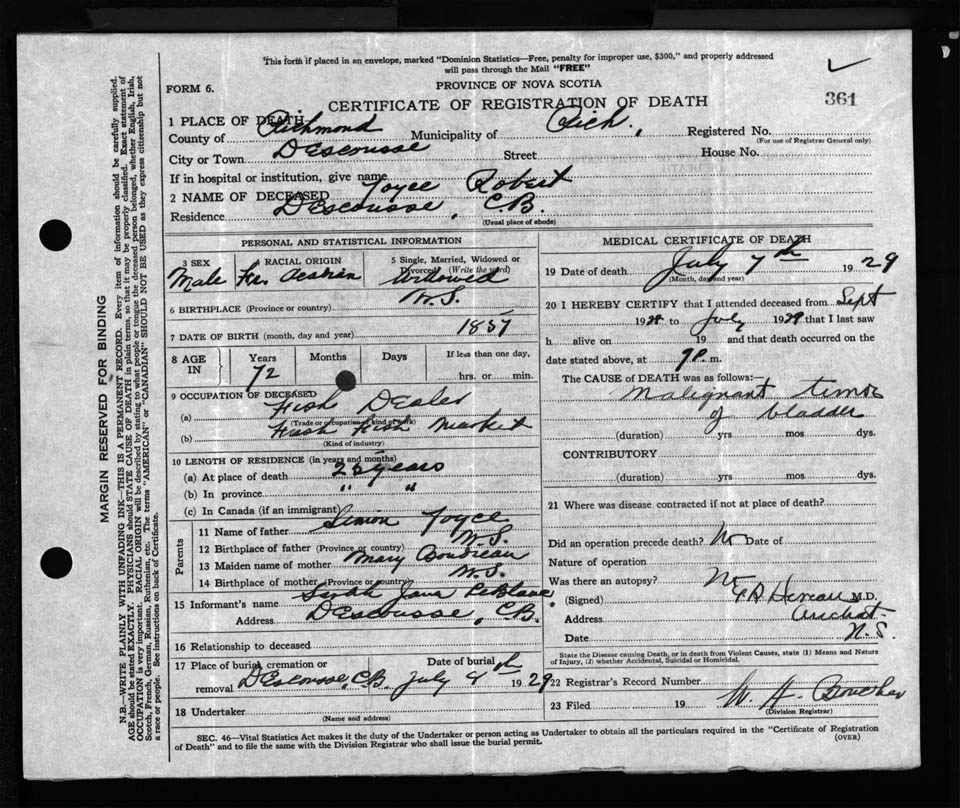 This form if placed in an envelope, marked "Dominion Statistics—Free, penalty for improper use, $300," and properly addressed
will pass through the Mail "FREE"
FORM 6.
PROVINCE OF NOVA SCOTIA
CERTIFICATE OF REGISTRATION OF DEATH
361
1 PLACE OF DEATH
County of Richmond Municipality of Rich. Registered No.
(For use of Registrar General only)
City or Town D'Escousse Street House No.
If in hospital or institution, give name
2 NAME OF DECEASED Joyce Robert
Residence D'Escousse, C.B.
(Usual place of abode)
PERSONAL AND STATISTICAL INFORMATION
3 SEX RACIAL ORIGIN 5 Single, Married, Widowed or Divorced (Write the word)
Male Fr. Acadian Widowed
6 BIRTHPLACE (Province or country) N.S.
7 DATE OF BIRTH (month, day and year) 1857
8 AGE IN Years Months Days If less than one day,
72 hrs. or min.
9 OCCUPATION OF DECEASED
(a) Fish Dealer
(Trade or occupation or kind of work)
(b) Fresh Fish Market
(Kind of industry)
10 LENGTH OF RESIDENCE (in years and months)
(a) At place of death 25 years
(b) In province " "
(c) In Canada (if an immigrant)
Parents
11 Name of father Simon Joyce
12 Birthplace of father (Province or country) N.S.
13 Maiden name of mother Mary Boudreau
14 Birthplace of mother (Province or country) N.S.
15 Informant's name Jane LeBlanc
Address D'Escousse, C.B.
16 Relationship to deceased
17 Place of burial, cremation or removal D'Escousse, C.B. Date of burial July 9th 1929
18 Undertaker
(Name and address)
MEDICAL CERTIFICATE OF DEATH
19 Date of death July 7th 1929
(Month, day and year)
20 I HEREBY CERTIFY that I attended deceased from Sept
1928 to July 1929 that I last saw
h alive on 19 and that death occurred on the
date stated above, at 9 P. m.
The CAUSE of DEATH was as follows:—
Malignant tumor
of bladder
(duration) yrs mos dys.
CONTRIBUTORY
(duration) yrs mos dys.
21 Where was disease contracted if not at place of death?
Did an operation precede death? No Date of
Nature of operation
Was there an autopsy? No
(Signed) M.D.
Address Arichat
Date N.S.
State the Disease causing Death, or in death from Violent Causes, state (1) Means and Nature
of Injury, (2) whether Accidental, Suicidal or Homicidal.
22 Registrar's Record Number
23 Filed 19 W. H.
(Division Registrar)
SEC. 46—Vital Statistics Act makes it the duty of the Undertaker or person acting as Undertaker to obtain all the particulars required in the "Certificate of Registration
of Death" and to file the same with the Division Registrar who shall issue the burial permit.
(OVER)
MARGIN RESERVED FOR BINDING
N.B.—WRITE PLAINLY WITH UNFADING INK—THIS IS A PERMANENT RECORD. Every item of information should be carefully supplied.
AGE should be stated EXACTLY. PHYSICIANS should STATE CAUSE OF DEATH in plain terms, so that it may be properly classified. Exact statement of
OCCUPATION is very important. RACIAL ORIGIN will be described by stating to what people or tongue the deceased person belonged, whether English, Irish,
Scotch, French, German, Russian, Ruthenian, etc. The terms "AMERICAN" or "CANADIAN" SHOULD NOT BE USED as they express citizenship but not
a race or people. See instructions on back of Certificate.